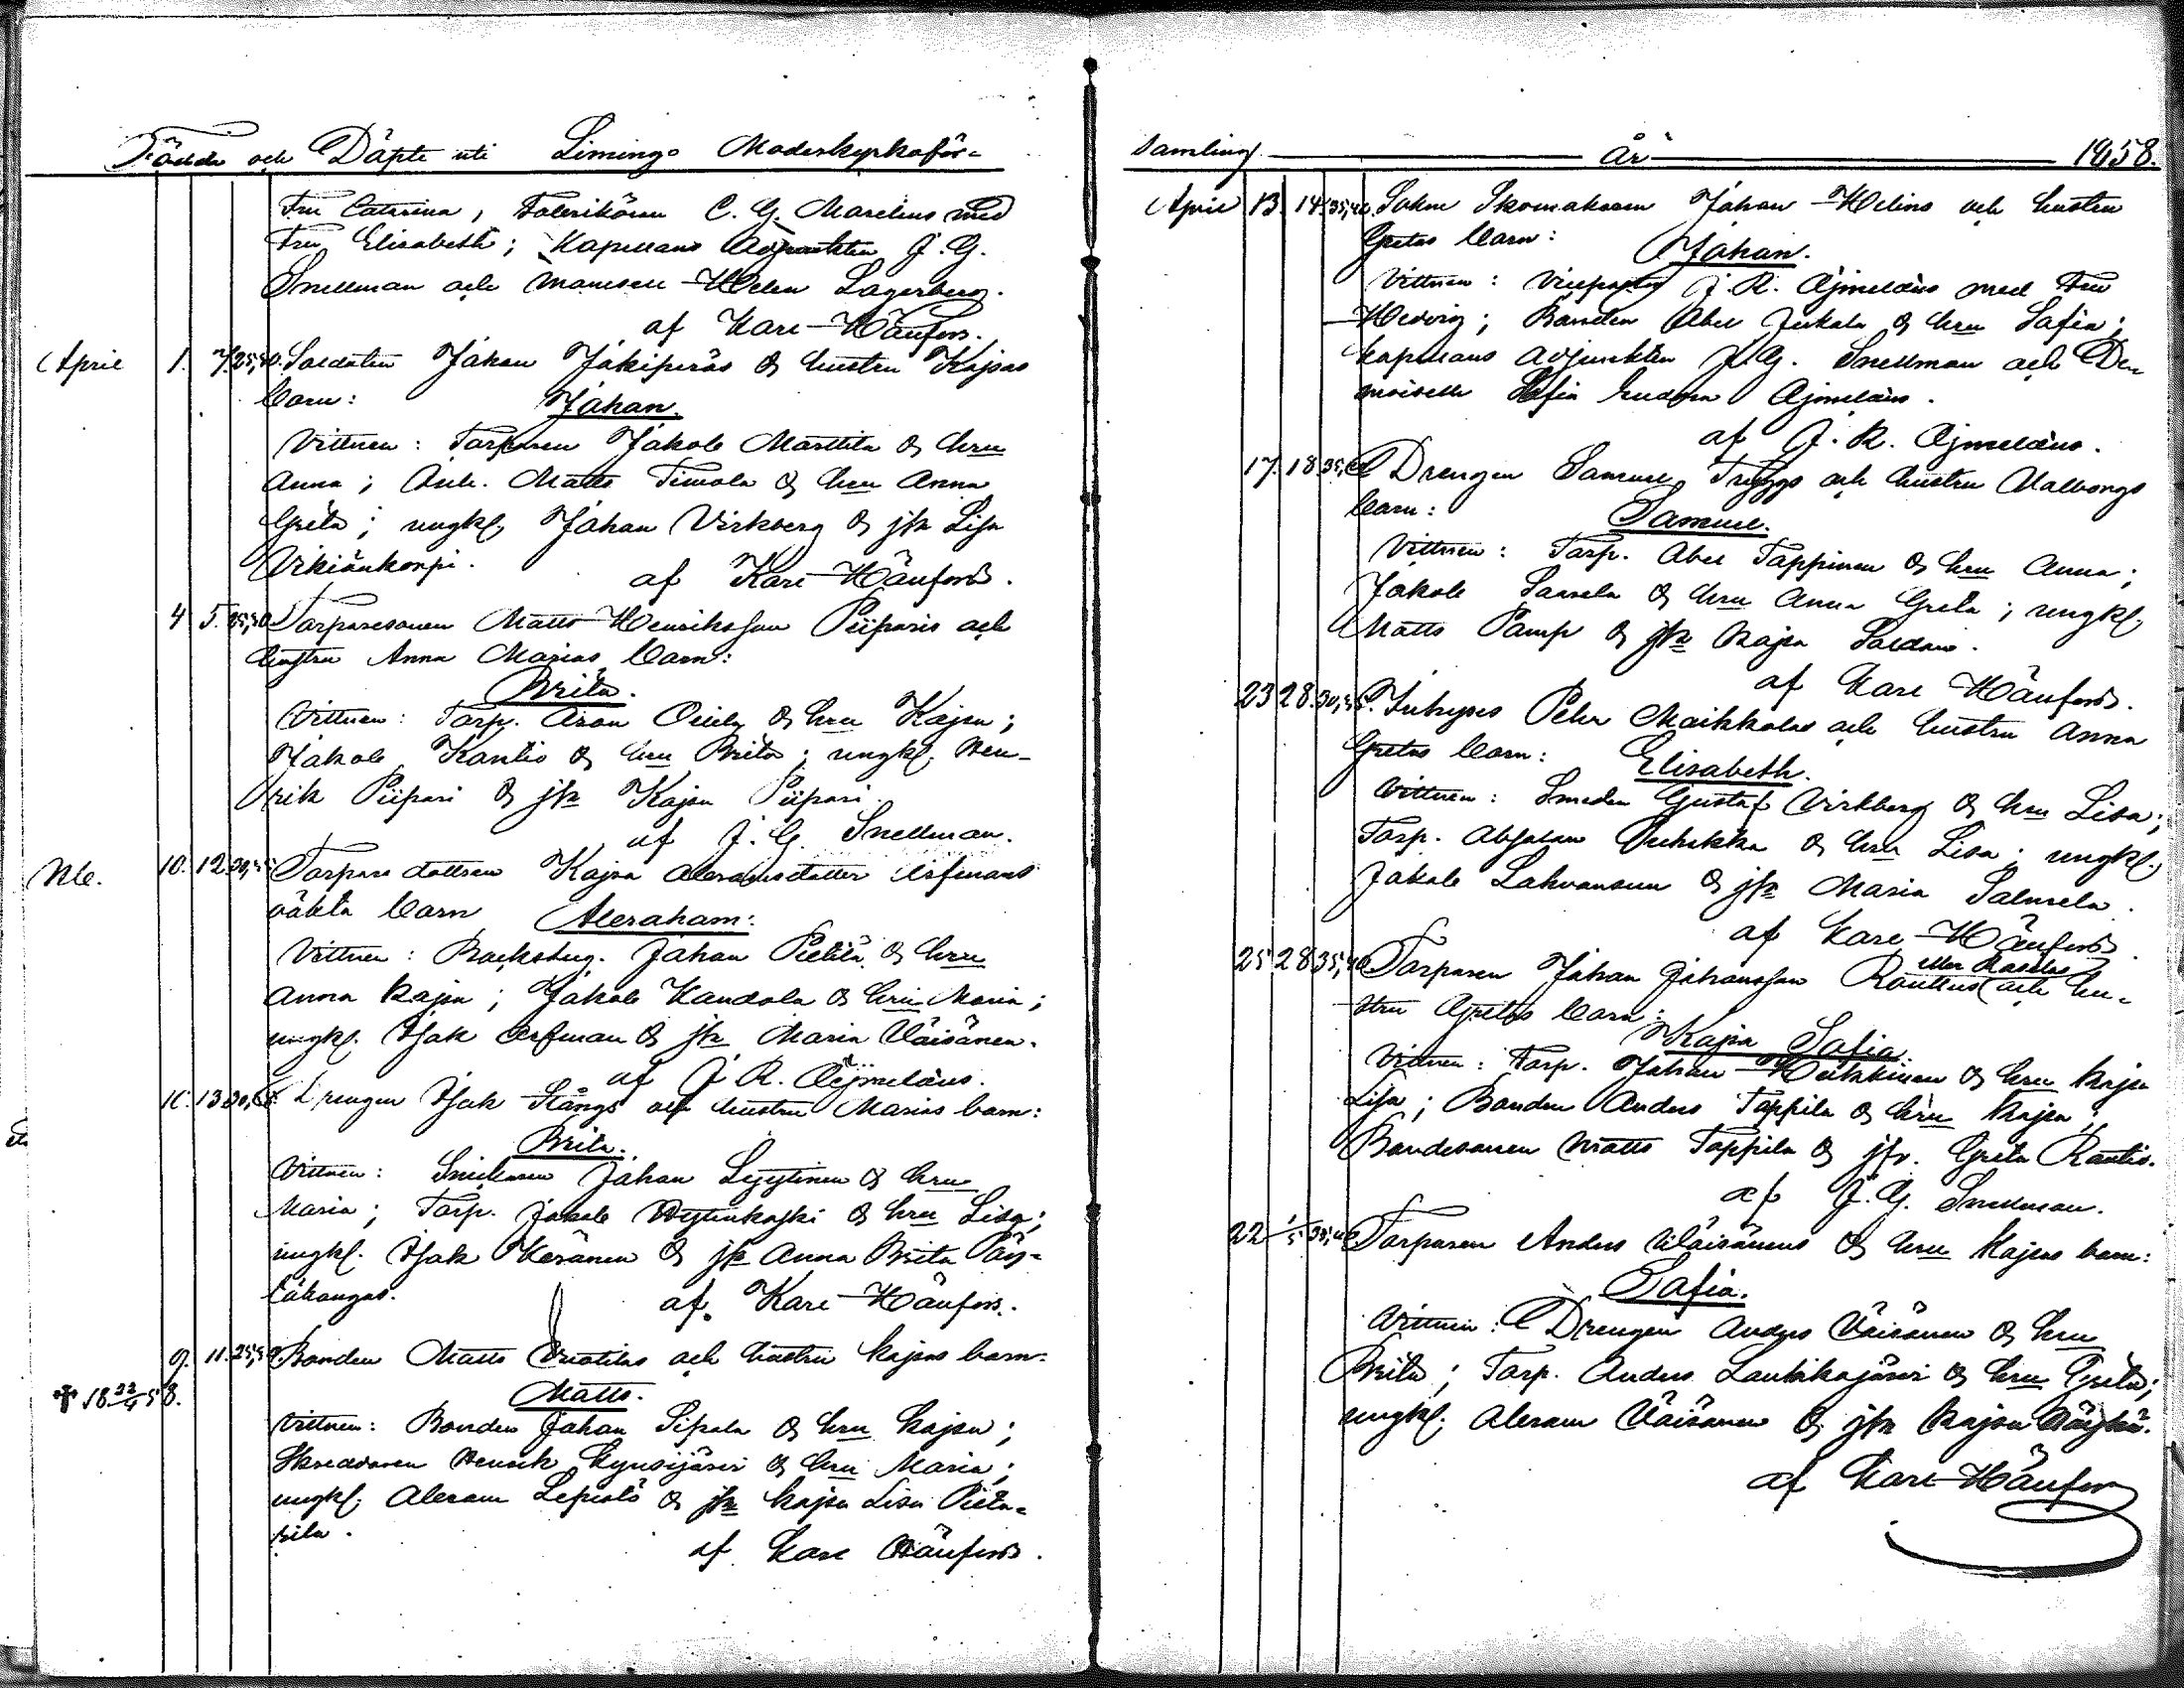 Födde och Döpte uti Limingo Moderkyrkoför-
Fru Catarina, Fabrikören C. G. Marelius med
Fru Elisabeth; Kapellans Adjunkten J. G.
Snellman och Mamsell Helen Lagerberg.
af Karl Hänfors.
April 1. 7. 25,30. Soldaten Johan Jokiperäs & hustru Kajsas
barn: Johan.
Vittnen: Torparen Jakob Marttila & hru
Anna; Matts Timola & hru Anna
Greta; ungkl. Johan Virkberg & jfr Lisa
af Karl Hänfors.
4 5. 25,30 Torparesonen Matts Henriksson Piiparis och
hustru Anna Marias barn:
Brita.
Vittnen: Torp. Aron & hru Kajsa;
Jakob Kantio & hru Brita; ungkl. Hen-
rik Piipari & jfr Kajsa Piipari.
af J. G. Snellman.
10. 12. Torpare dottren Kajsa Abrahamsdotter Erfmans
oäkta barn Abraham:
Vittnen: Backstug. Johan Pietilä & hru
Anna Kajsa; Jakob Kandola & hru Maria;
ungkl. Isak Erfman & jfr Maria Väisänen.
af J. R. Ajmelæus.
13 Drengen Isak Stångs och hustru Marias barn:
Brita.
Vittnen: Johan Lyytinen & hru
Maria; Torp. Jakob & hru Lisa;
ungkl. Isak Keränen & jfr Anna Brita Pöy-
täkangas. af Karl Hänfors.
9. 11. 25,30 Bonden Matts och hustru Kajsas barn:
† 18 22/4 58. Matts.
Vittnen: Bonden Johan Sipola & hru Kajsa;
Skreddaren Henrik Kynsijärvi & hru Maria;
ungkl. Abram Lepistö & jfr Kajsa Lisa Pieta-
rila.
af Karl Hänfors.
samling År 1858.
April 13 14 35,40. Sokne Skomakaren Johan Helins och hustru
Gretas barn: Johan.
Vittnen: Vicepastor J. R. Ajmelæus med Fru
Hedvig; Bonden Abel Jukola & hru Sofia;
Kapellans Adjunkten J. G. Snellman och De-
moiselle Sofia Ajmelæus.
af J. R. Ajmelæus.
17. 18 Drengen Samuel Tryggs och hustru Valborgs
barn: Samuel.
Vittnen: Torp. Abel Tappinen & hru Anna;
Jakob Saarela & hru Anna Greta; ungkl.
Matts Pamp & jfr Kajsa Soldan.
af Karl Hänfors.
23 28. Inhyses Pehr Maikkolas och hustru Anna
Gretas barn: Elisabeth.
Vittnen: Smeden Gustaf Virkberg & hru Lisa;
Torp. Absalon & hru Lisa; ungkl.
Jakob & jfr Maria Salmela.
af Karl Hänfors.
25 28 35,40 Torparen Johan Johansson och hu-
stru Gretas barn:
Kajsa Sofia.
Vittnen: Torp. Johan Heikkinen & hru Kajsa
Lisa; Bonden Anders Tappila & hru Kajsa;
Bondesonen Matts Tappila & jfr. Greta Rantio.
af J. G. Snellman.
22 1/5 Torparen Anders Väisänens & hru Kajsas barn:
Sofia.
Vittnen: Drengen Anders Väisänen & hru
Brita; Torp. Anders & hru Greta;
ungkl. Abram Väisänen & jfr Kajsa
af Karl Hänfors